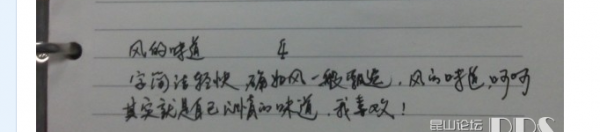 风的味道
字简洁轻快 确如风一般飘逸，风的味道，呵呵
其实就是自己心情的味道，我喜欢！
昆山论坛
BBS